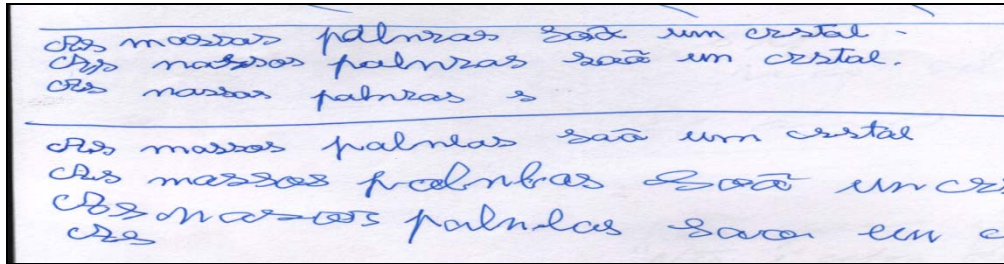 As massas palnras soã um crstal.
As nassos palnras saã um crstal.
As nassas palnras s
As massos palnlas saã um crstal
As massoas palnlras soã um crs
As nassos palnlas savo eum c
As